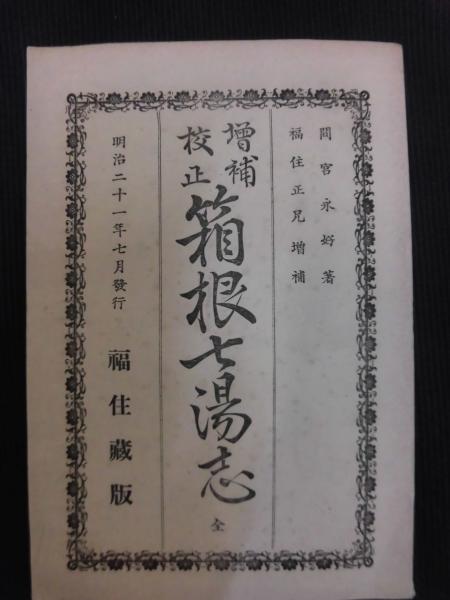 間宮永好著
福住正兄增補
增補
校正
箱根七湯志
全
明治二十一年七月發行
福住藏版